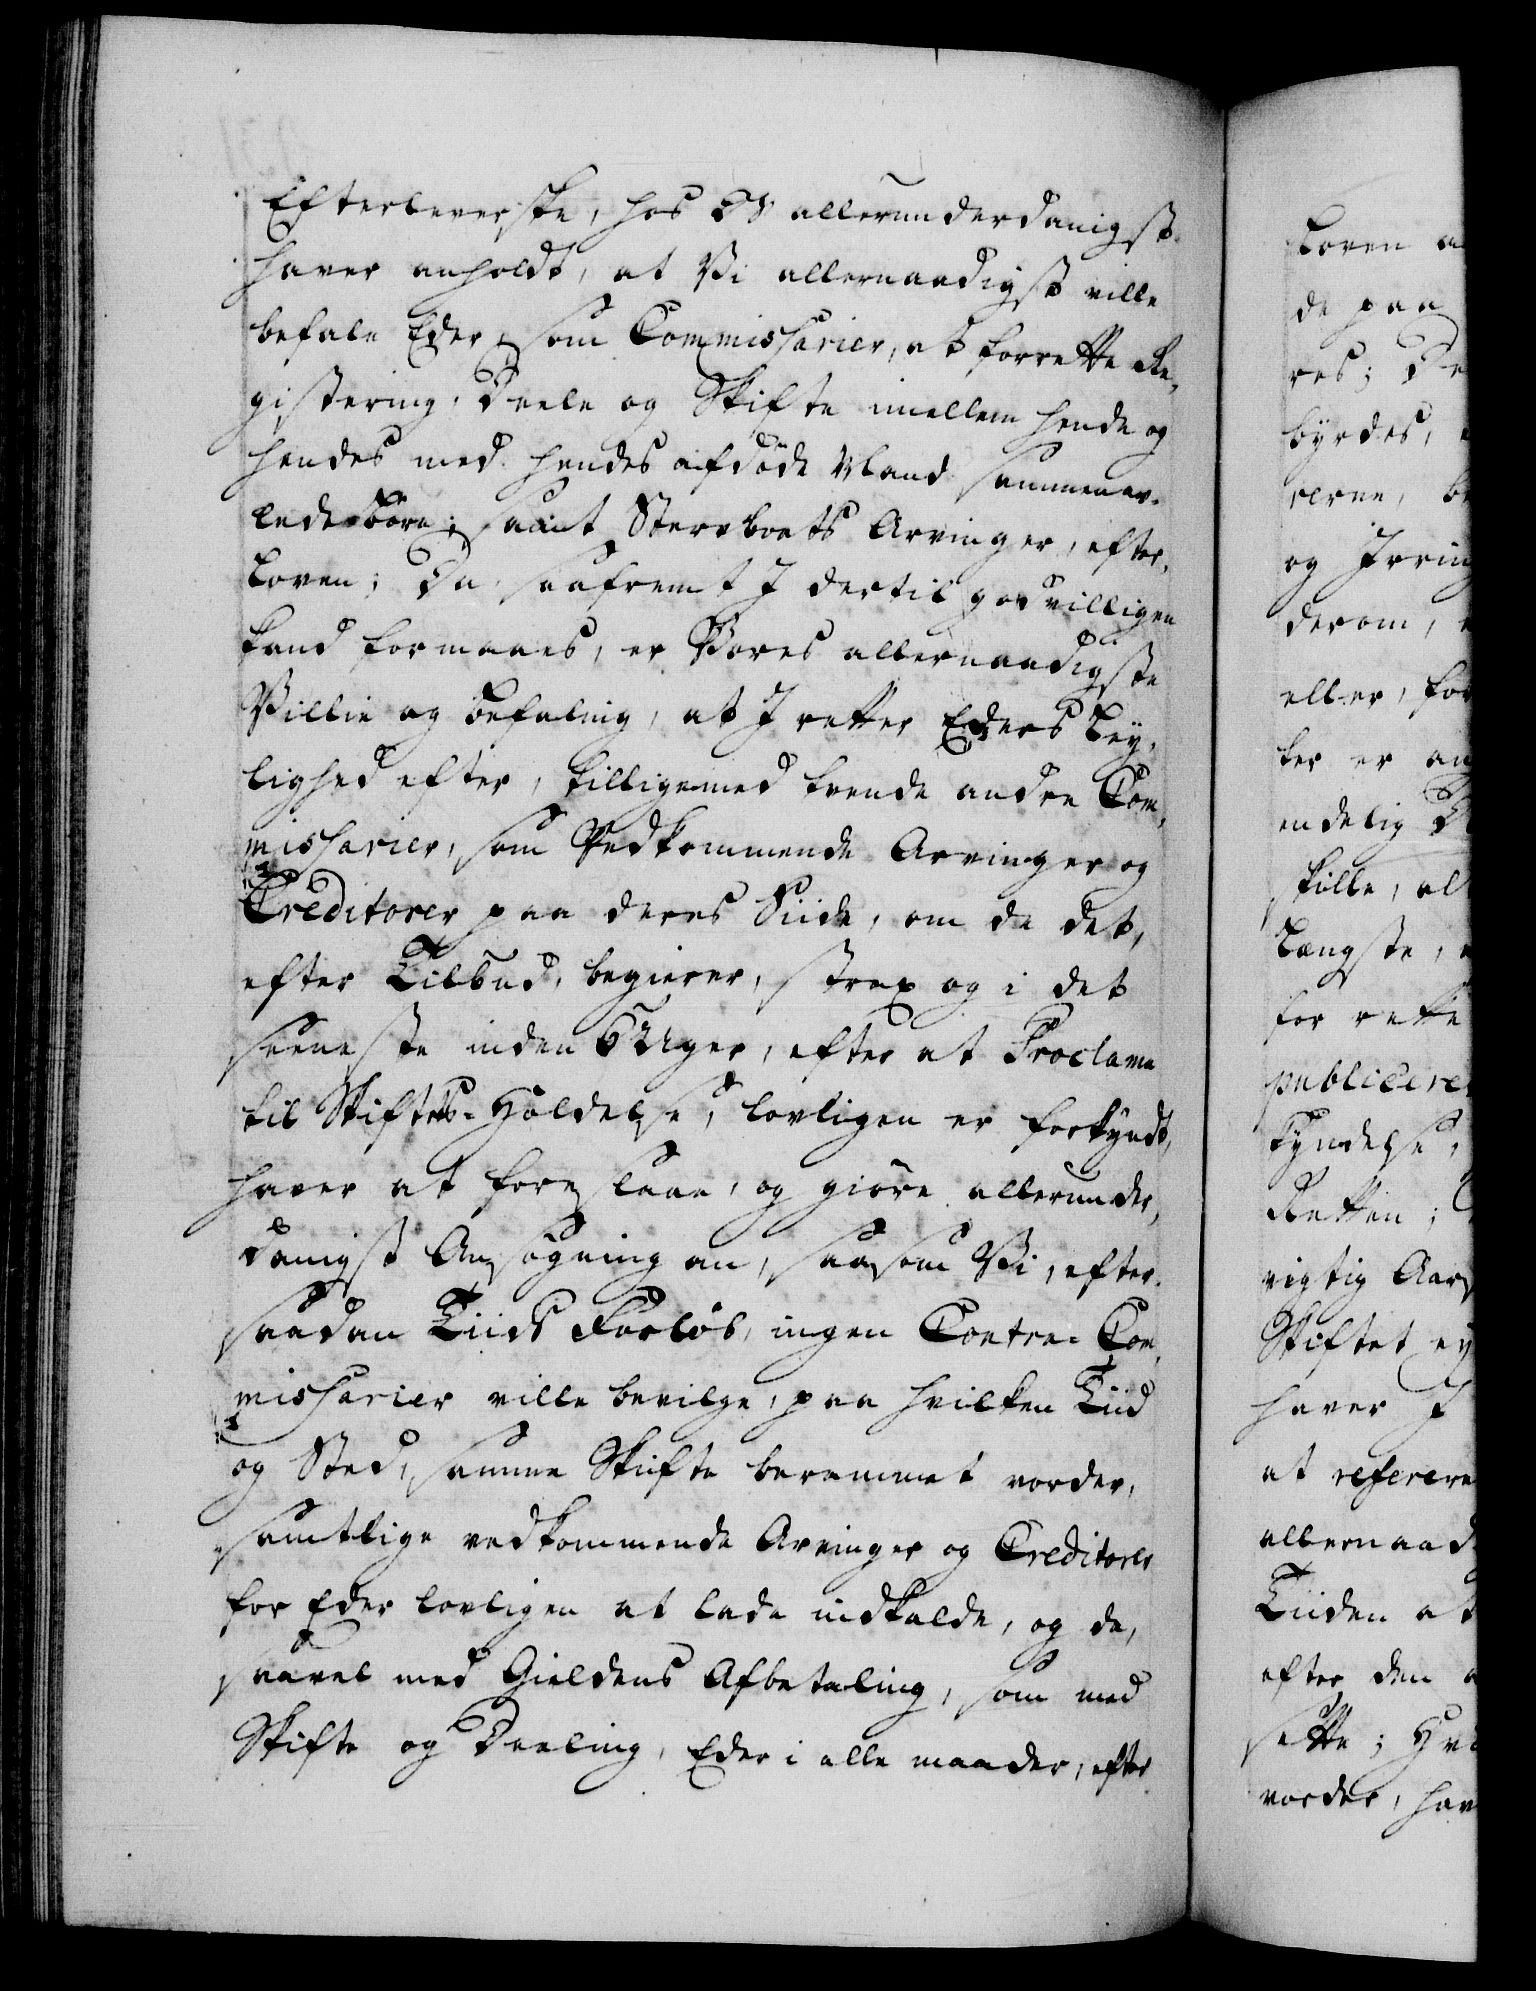 Efterleverske, hos Os allerunderdanigst
haver anholdt, at Vi allernaadigst ville
befale Eder, som Commissarier, at forrette Re-
gistering, Deele og Skifte imellem hende og
hendes med hendes afdöde Mand sammenav-
lede Börn, samt Sterv boets Arvinger, efter
Loven; Da, saafremt I dertil godvilligen
kand formaaes, er Vores allernaadigste
Villie og Befaling, at I retter Eders Ley-
lighed efter, tilligemed tvende andre Com-
missarier, som Vedkommende Arvinger og
Creditorer paa deres Siide, om de det,
efter Tilbud, begierer, strax og i det
seeneste inden 6 Uger, efter at Proclama
til Skiftets-Holdelse, lovligen er forkyndt,
haver at foreslaae, og giöre allerunder-
danigst Ansögning om, saasom Vi, efter
saadan Tiids Forlöb, ingen Contra-Com-
missarier ville bevilge, paa hvilken Tiid
og Sted, samme Skifte berammet vorder,
samtlige vedkommende Arvinger og Creditorer
for Eder lovligen at lade indkalde, og da,
saavel med Gieldens Afbetaling, som med
Skifte og Deeling, Eder i alle maader, efter
Loven
de paa
res; De
byrdes,
rerne,
og Irring
derom,
eller, for
ter er an
endelig
skille, al
Længste,
for rette
publicere
kyndelse,
Retten;
vigtig Aars
Skiftet ey
haver I
at referere
allernaad
Tiiden at
efter den
sette; Hva
vorder, hav